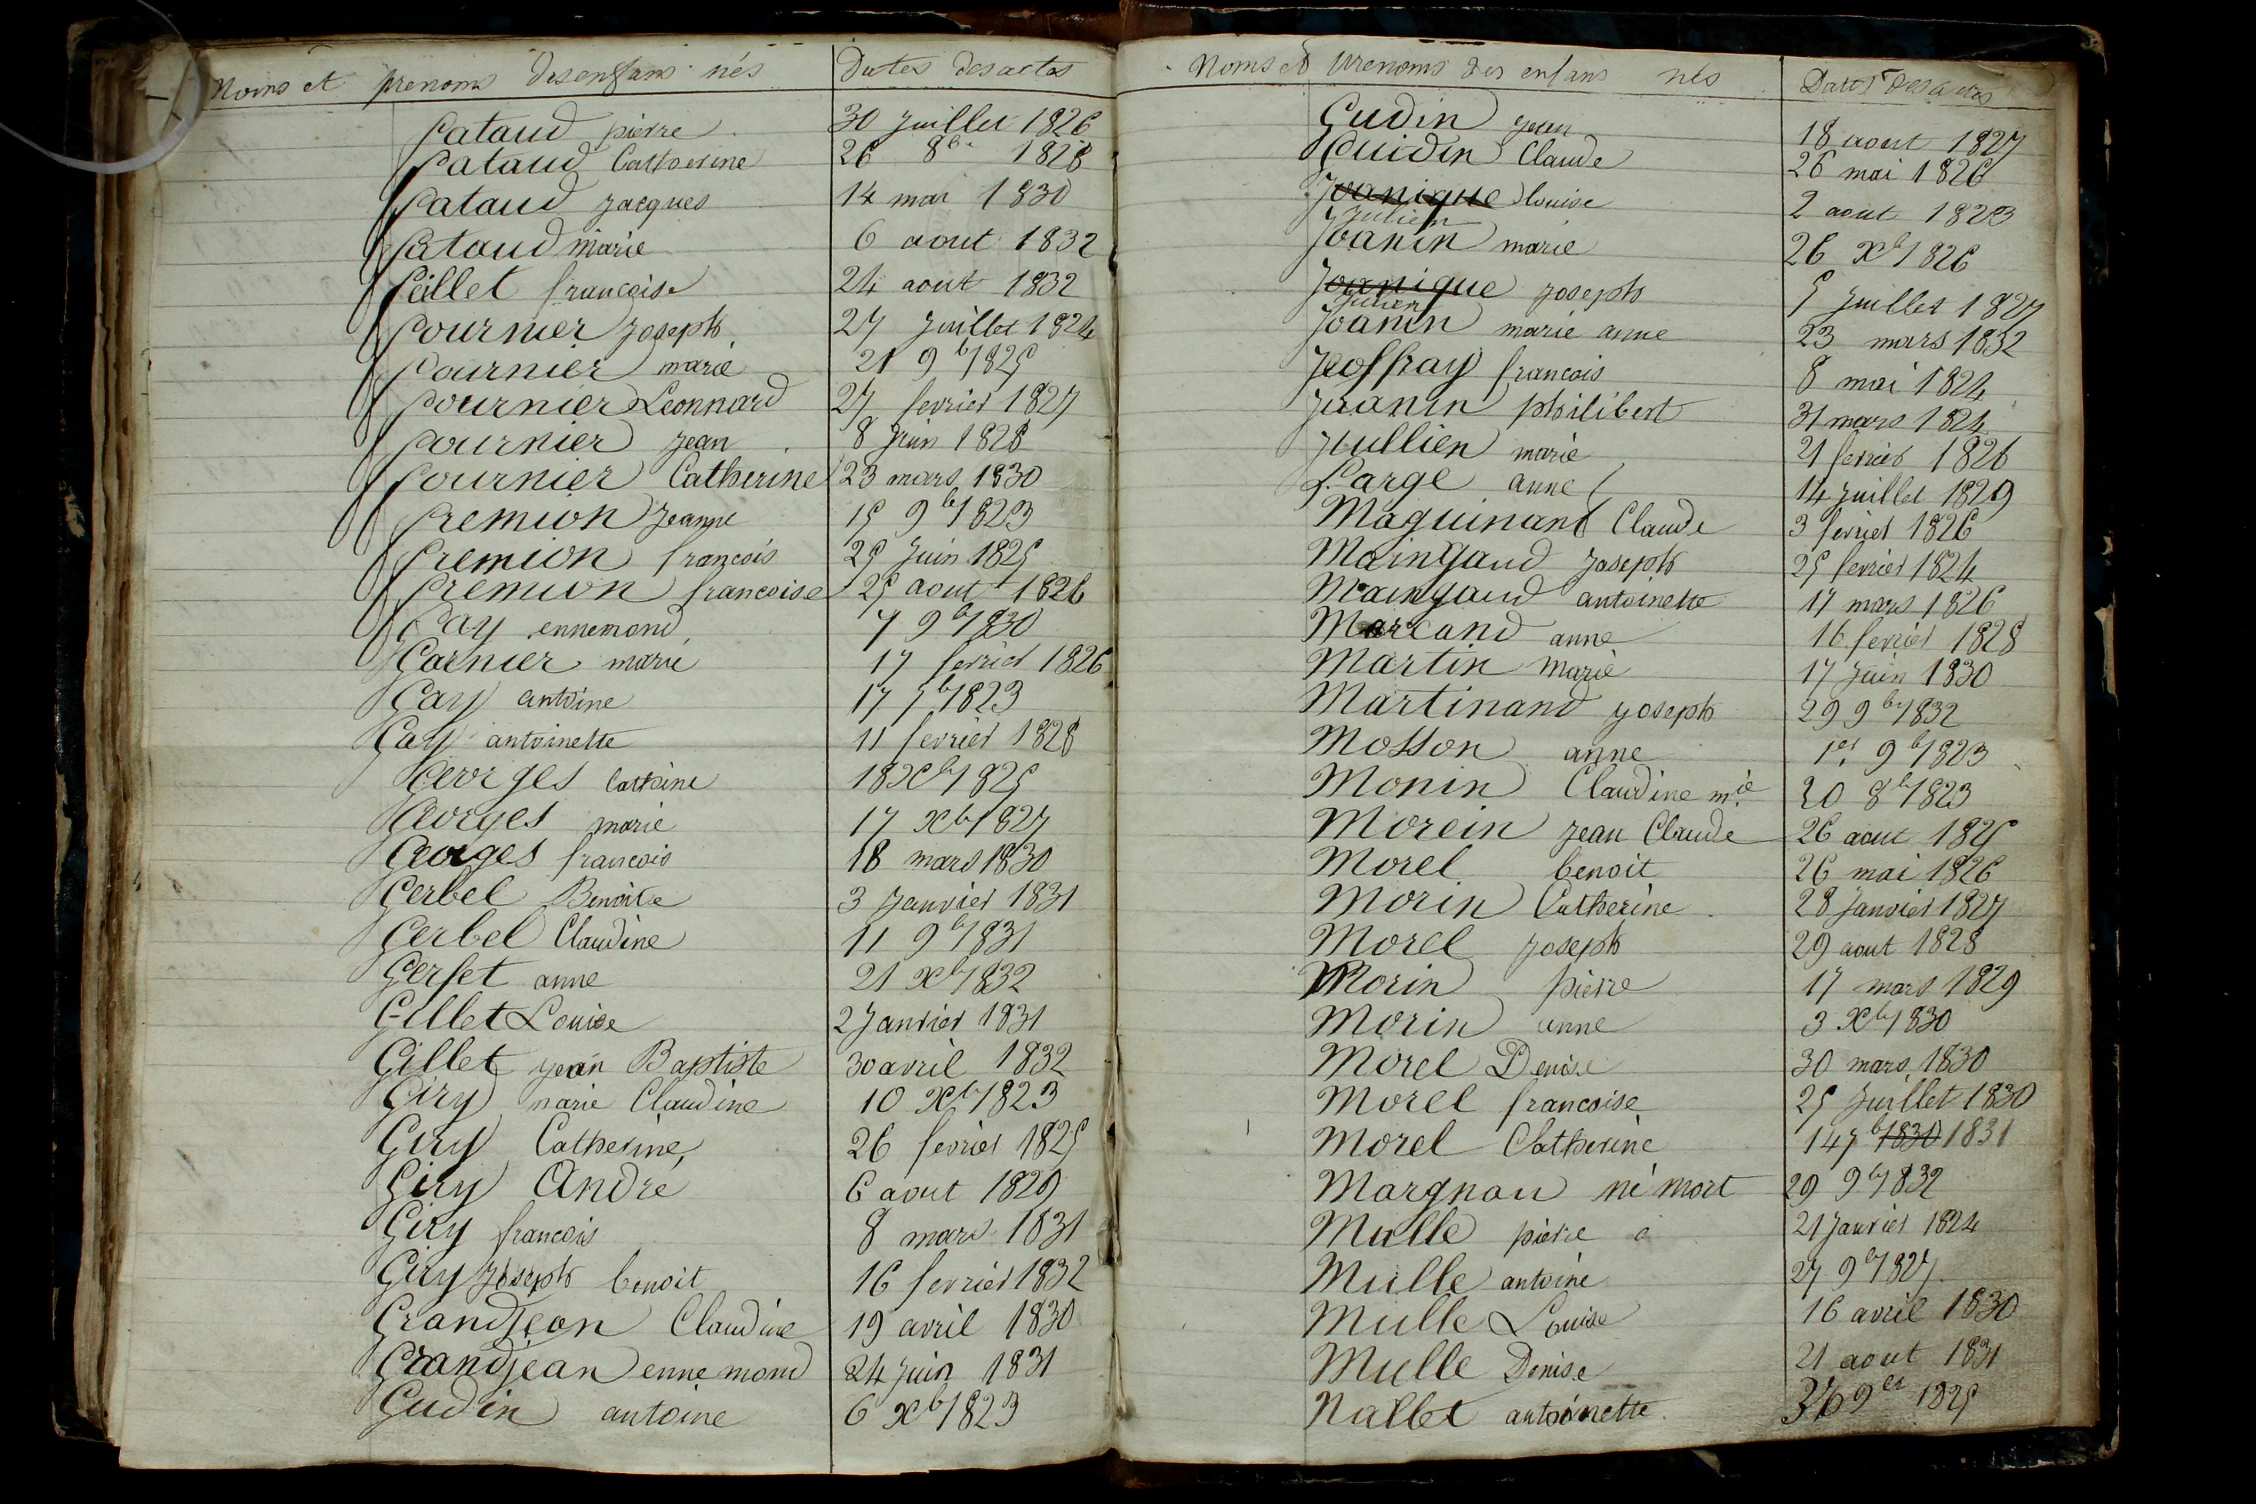 Noms et prenoms des enfans nés Dates des actes
Fataud pierre 30 Juillet 1826
Fataud Catherine 26 8b. 1828
Fataud Jacques 14 mai 1830
Fataud marie 6 aout 1832
Fillet francoise 24 aout 1832
Fournier Joseph 27 Juillet 1824
Fournier marie 21 9b 1825
Fournier Leonnard 27 fevrier 1827
Fournier Jean 8 Juin 1828
Fournier Catherine 23 mars 1830
Fremion Jeanne 15 9b 1823
Fremion francois 25 Juin 1825
Fremion francoise 25 aout 1826
Gay ennemond 7 9b 1830
Garnier marie 17 fevrier 1826
Gay antoine 17 7b 1823
Gay antoinette 11 fevrier 1828
Georges 18 Xb 1825
Georges marie 17 Xb 1827
Georges francois 18 mars 1830
Gerbel Benoite 3 Janvier 1831
Gerbel Claudine 11 9b 1831
Gerfet anne 21 Xb 1832
Gillet Louise 2 Janvier 1831
Gillet Jean Baptiste 30 avril 1832
Giry marie Claudine 10 Xb 1823
Giry Catherine 26 fevrier 1825
Giry André 6 aout 1829
Giry francois 8 mars 1831
Giry Joseph benoit 16 fevrier 1832
Grandjean Claudine 19 avril 1830
Grandjean ennemond 24 Juin 1831
Gudin antoine 6 Xb 1823
Noms et prenoms des enfans nés Dates des actes
Gudin Jean 18 aout 1827
Guidin Claude 26 mai 1826
Joanique louise 2 aout 1823
Julien
Joanin marie 26 Xb 1826
Joanique Joseph 5 Juillet 1827
Julien
Joanin marie anne 23 mars 1832
Joffray francois 8 mai 1824
Juanin philibert 31 mars 1824
Jullien marie 21 fevrier 1826
Large anne 14 Juillet 1829
Maguinant Claude 3 fevrier 1826
Maingaud Joseph 25 fevrier 1824
Maingaud antoinette 17 mars 1826
Marcand anne 16 fevrier 1828
Martin marie 17 Juin 1830
Martinand Joseph 29 9b 1832
Mosson anne 1er 9b 1823
Monin Claudine mie 20 8b 1823
Morein Jean Claude 26 aout 1825
Morel benoit 26 mai 1826
Morin Catherine 28 Janvier 1827
Morel Joseph 29 aout 1828
Morin pierre 17 mars 1829
Morin anne 3 Xb 1830
Morel Denise 30 mars 1830
Morel francoise 25 Juillet 1830
Morel Catherine 14 7b 1830 1831
Margnan né mort 29 9b 1832
Mulle pierre 21 Janvier 1824
Mulle antoine 27 9b 1827
Mulle Louise 16 avril 1830
Mulle Denise 21 aout 1831
Nallet antoinette 9br 1825